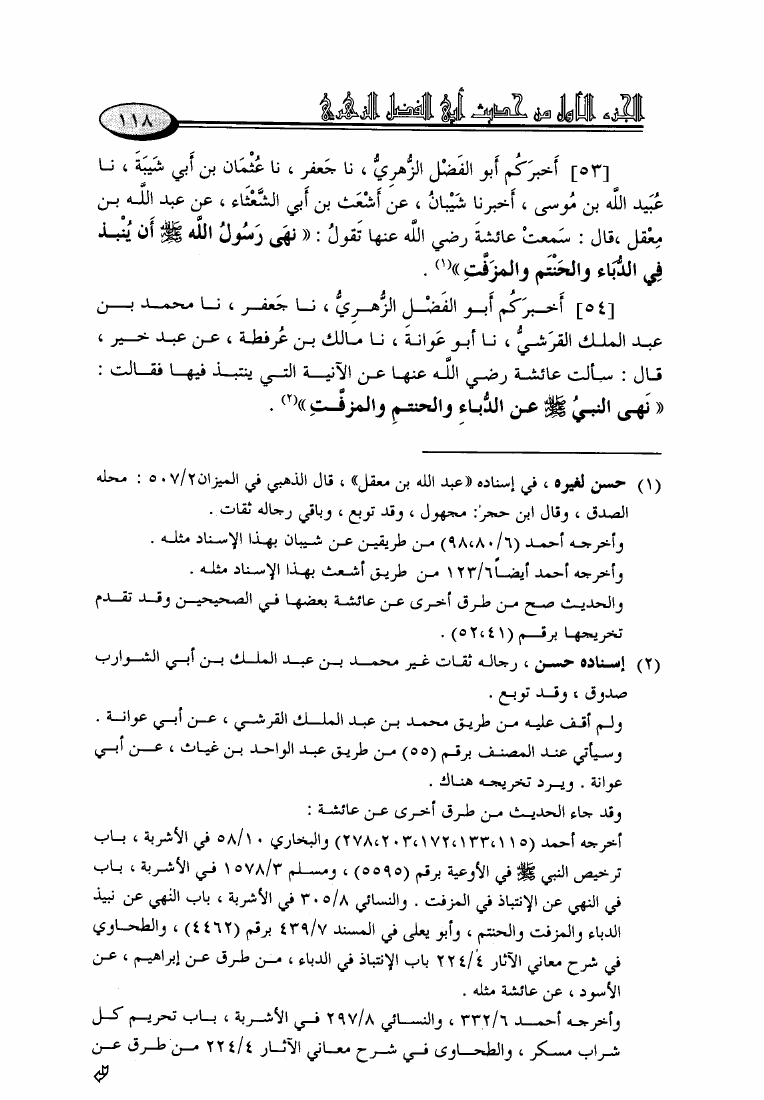 الجزء الأول من حديث أبي الفضل الزهري
١١٨
[٥٣] أخبرَكُم أبو الفَضْل الزُّهريُّ ، نا جَعفر ، نا عُثْمَان بن أبي شَيْبَةَ ، نـا
عُبَيد اللَّه بن مُوسى ، أخبرنا شَيْبَانُ ، عن أشْعَث بن أبي الشَّعْثَاء ، عن عبد اللَّـه بـن
مِعْقل ،قال : سَمعتْ عائشةَ رضي اللَّه عنها تَقولُ : « نهَى رَسُولُ الله ﷺ أن يُنْبـذ
فِي الدُّبَاء والحَنْتَم والمزَفَّتِ»(١) .
[٥٤] أخـبرَكُم أبـو الفَضْـل الزُّهـريُّ ، نـا جَعفـر ، نـا محمـد بـن
عبـد الملـك القرَشـيُّ ، نـا أبـو عَوانـةَ ، نـا مـالك بـن عُرفطـة ، عـن عبـد خـير ،
قـال : سـألت عائشـة رضـي اللَّـه عنهـا عـن الآنيـة التـي ينتبـذ فيهـا فقـالت :
« نَهـى النبـيُ ﷺ عـن الدُّبـاءِ والحنتـمِ والمزفَّـتِ »(٢) .
(١) حسن لغيره ، في إسناده «عبد الله بن معقل» ، قال الذهبي في الميزان٥٠٧/٢ : محله
الصدق ، وقال ابن حجر: مجهول ، وقد توبع ، وباقي رجاله ثقات .
وأخرجـه أحمـد (٩٨،٨٠/٦) مـن طريقـين عـن شـيبان بهـذا الإسـناد مثلـه .
وأخرجه أحمد أيضـاً١٢٣/٦ مـن طريـق أشـعث بهـذا الإسـناد مثلـه .
والحديـث صـح مـن طـرق أخـرى عـن عائشـة بعضهـا فـي الصحيحيـن وقـد تقـدم
تخريجهـا برقـم (٥٢،٤١) .
(٢) إسـناده حسـن ، رجالـه ثقـات غـير محمـد بـن عبـد الملـك بـن أبـي الشـوارب
صدوق ، وقـد توبـع .
ولـم أقـف عليـه مـن طريـق محمـد بـن عبـد الملـك القرشـي ، عـن أبـي عوانـة .
وسـيأتي عنـد المصنـف برقـم (٥٥) مـن طريـق عبـد الواحـد بـن غيـاث ، عـن أبـي
عوانة . ويـرد تخريجـه هنـاك .
وقد جاء الحديـث مـن طـرق أخـرى عـن عائشـة :
أخرجه أحمد (٢٧٨،٢٠٣،١٧٢،١٣٣،١١٥) والبخاري ٥٨/١٠ في الأشربة ، بـاب
ترخيص النبي ﷺ في الأوعية برقم (٥٥٩٥) ، ومسلـم ١٥٧٨/٣ فـي الأشـربة ، بـاب
في النهي عن الإنتباذ في المزفت . والنسائي ٣٠٥/٨ في الأشربة ، باب النهي عن نبيذ
الدباء والمزفت والحنتم ، وأبو يعلى في المسند ٤٣٩/٧ برقم (٤٤٦٢) ، والطحـاوي
في شرح معاني الآثار ٢٢٤/٤ باب الإنتباذ في الدباء ، مـن طـرق عـن إبراهيـم ، عن
الأسود ، عن عائشة مثله .
وأخرجـه أحمـد ٣٣٢/٦ ، والنسـائي ٢٩٧/٨ فـي الأشـربة ، بـاب تحريـم كـل
شراب مسكر ، والطحـاوى فـي شـرح معـاني الآثـار ٢٢٤/٤ مـن طـرق عـن